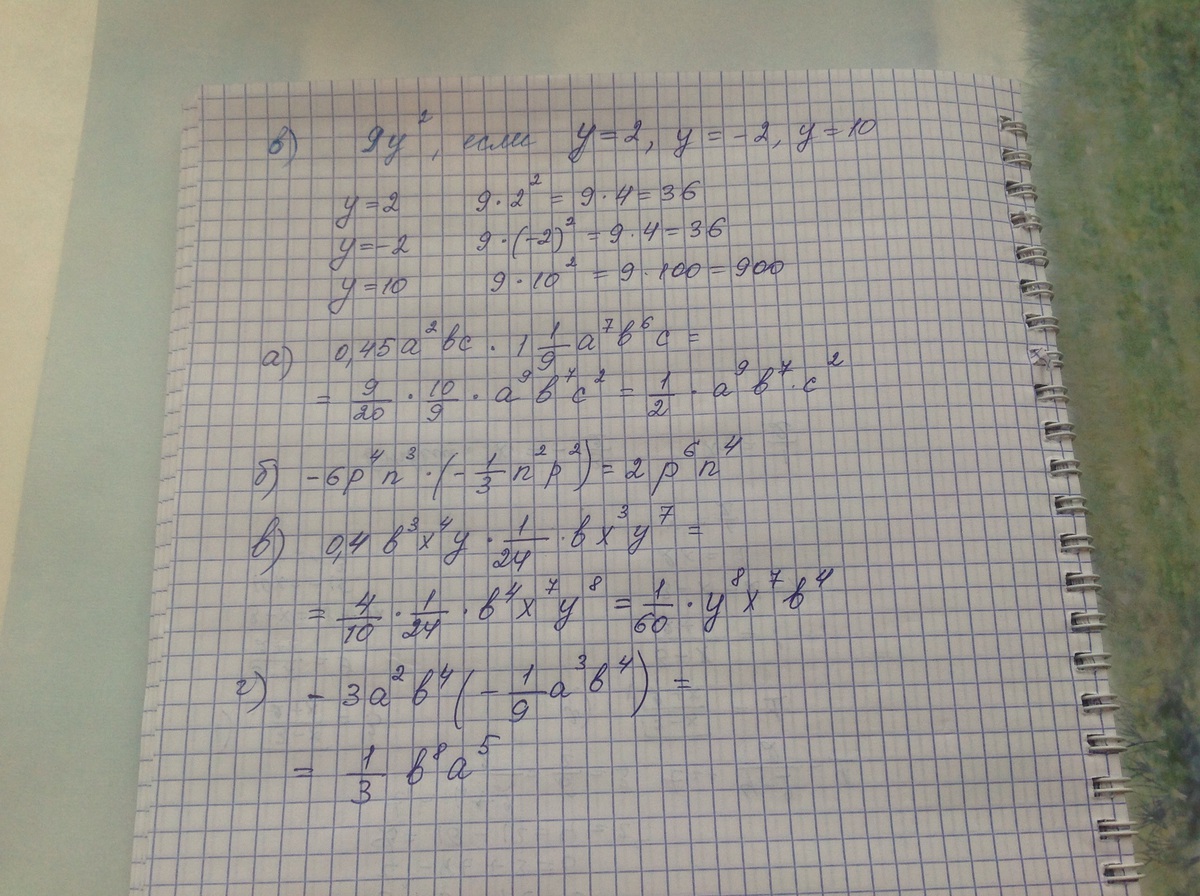 в) 9y², если y=2, y=-2, y=10
y=2 9·2²=9·4=36
y=-2 9·(-2)²=9·4=36
y=10 9·10²=9·100=900
а) 0,45a²вc·1 1/9 a⁷в⁶c=
= 9/20 · 10/9 · a⁹в⁷c² = 1/2 · a⁹в⁷·c²
б) -6p⁴n³·(-1/3 n²p²)=2p⁶n⁴
в) 0,4 в³x⁴y · 1/24 · вx³y⁷ =
= 4/10 · 1/24 · в⁴x⁷y⁸ = 1/60 · y⁸x⁷в⁴
г) -3a²в⁴(-1/9 a³в⁴) =
= 1/3 в⁸a⁵